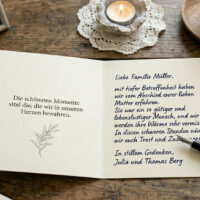 Die schönsten Momente
sind die, die wir in unseren
Herzen bewahren.
Liebe Familie Müller,
mit tiefer Betroffenheit haben
wir vom Abschied eurer lieben
Mutter erfahren.
Sie war ein so gütiger und
lebenslustiger Mensch, und wir
werden ihre Wärme sehr vermis
In diesen schweren Stunden wün
wir euch Trost und Zu
In stillem Gedenken,
Julia und Thomas Berg